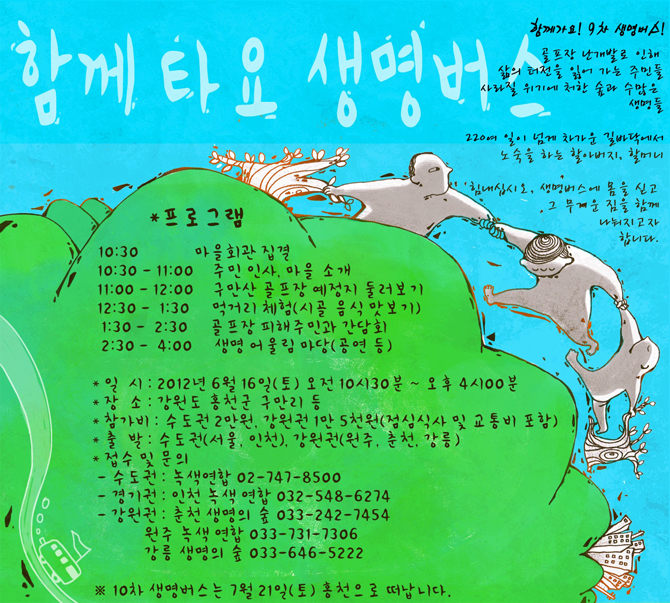 함께 타요 생명버스
함께가요! 9차 생명버스!
골프장 난개발로 인해
삶의 터전을 잃어 가는 주민들
사라질 위기에 처한 숲과 수많은
생명들
220여 일이 넘게 차가운 길바닥에서
노숙을 하는 할아버지, 할머니
'힘내십시오, 생명버스에 몸을 싣고
그 무거운 짐을 함께
나눠지고자
합니다.
*프로그램
10:30 마을회관 집결
10:30 - 11:00 주민 인사, 마을 소개
11:00 - 12:00 구만산 골프장 예정지 둘러보기
12:30 - 1:30 먹거리 체험(시골 음식 맛보기)
1:30 - 2:30 골프장 피해주민과 간담회
2:30 - 4:00 생명 어울림 마당(공연 등)
* 일 시 : 2012년 6월 16일(토) 오전 10시30분 ~ 오후 4시00분
* 장 소 : 강원도 홍천군 구만리 등
* 참가비 : 수도권 2만원, 강원권 1만 5천원(점심식사 및 교통비 포함)
* 출 발 : 수도권(서울, 인천), 강원권(원주, 춘천, 강릉)
* 접수 및 문의
- 수도권 : 녹색연합 02-747-8500
- 경기권 : 인천 녹색 연합 032-548-6274
- 강원권 : 춘천 생명의 숲 033-242-7454
원주 녹색 연합 033-731-7306
강릉 생명의 숲 033-646-5222
※ 10차 생명버스는 7월 21일(토) 홍천으로 떠납니다.